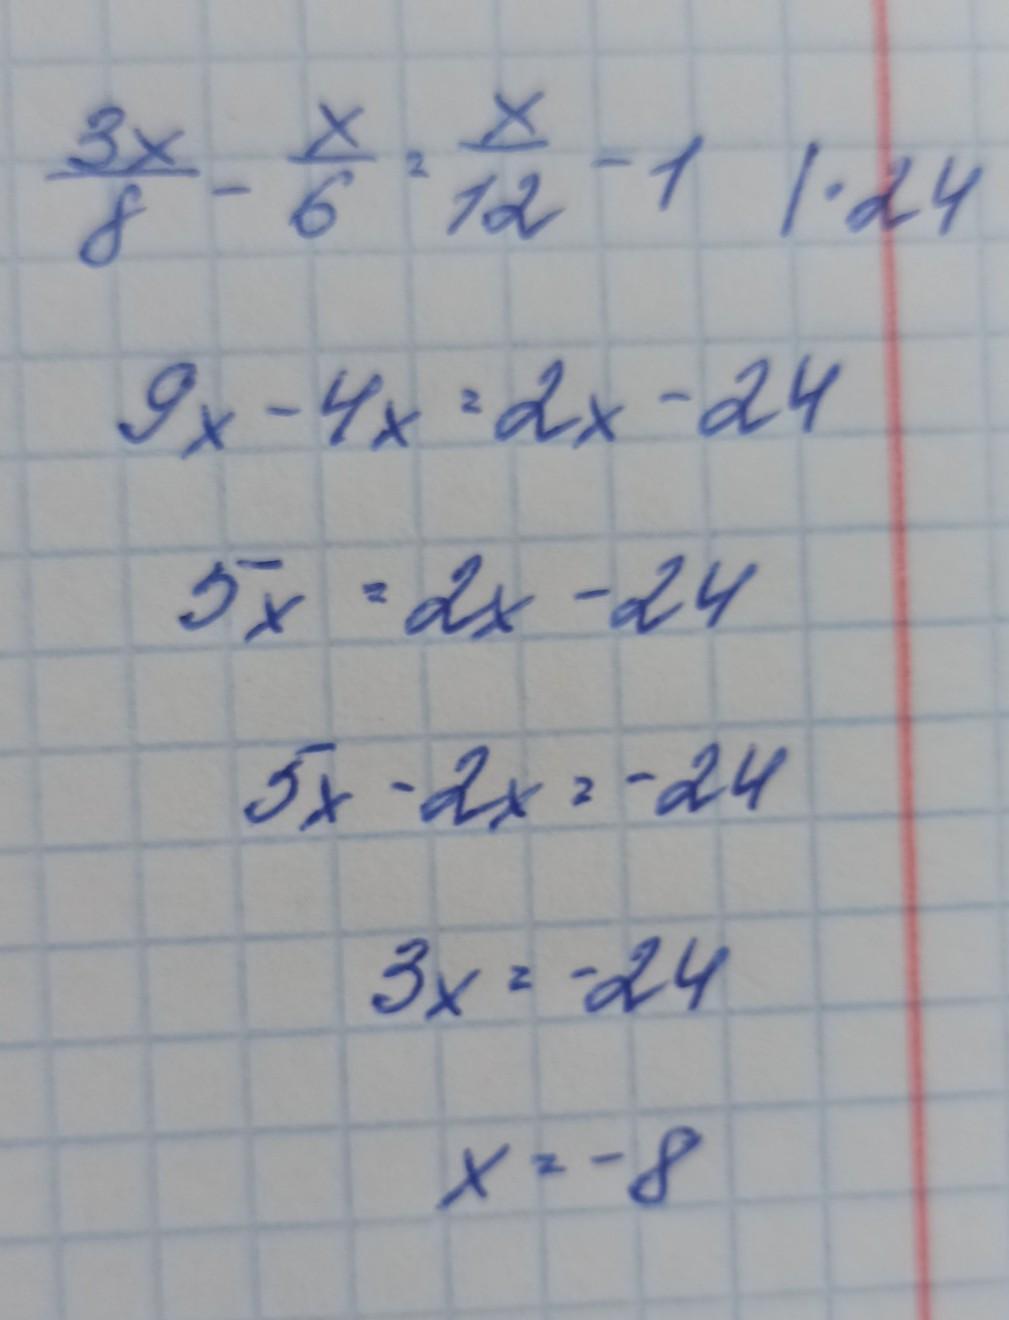 3x/8 - x/6 = x/12 - 1 | · 24
9x - 4x = 2x - 24
5x = 2x - 24
5x - 2x = -24
3x = -24
x = -8